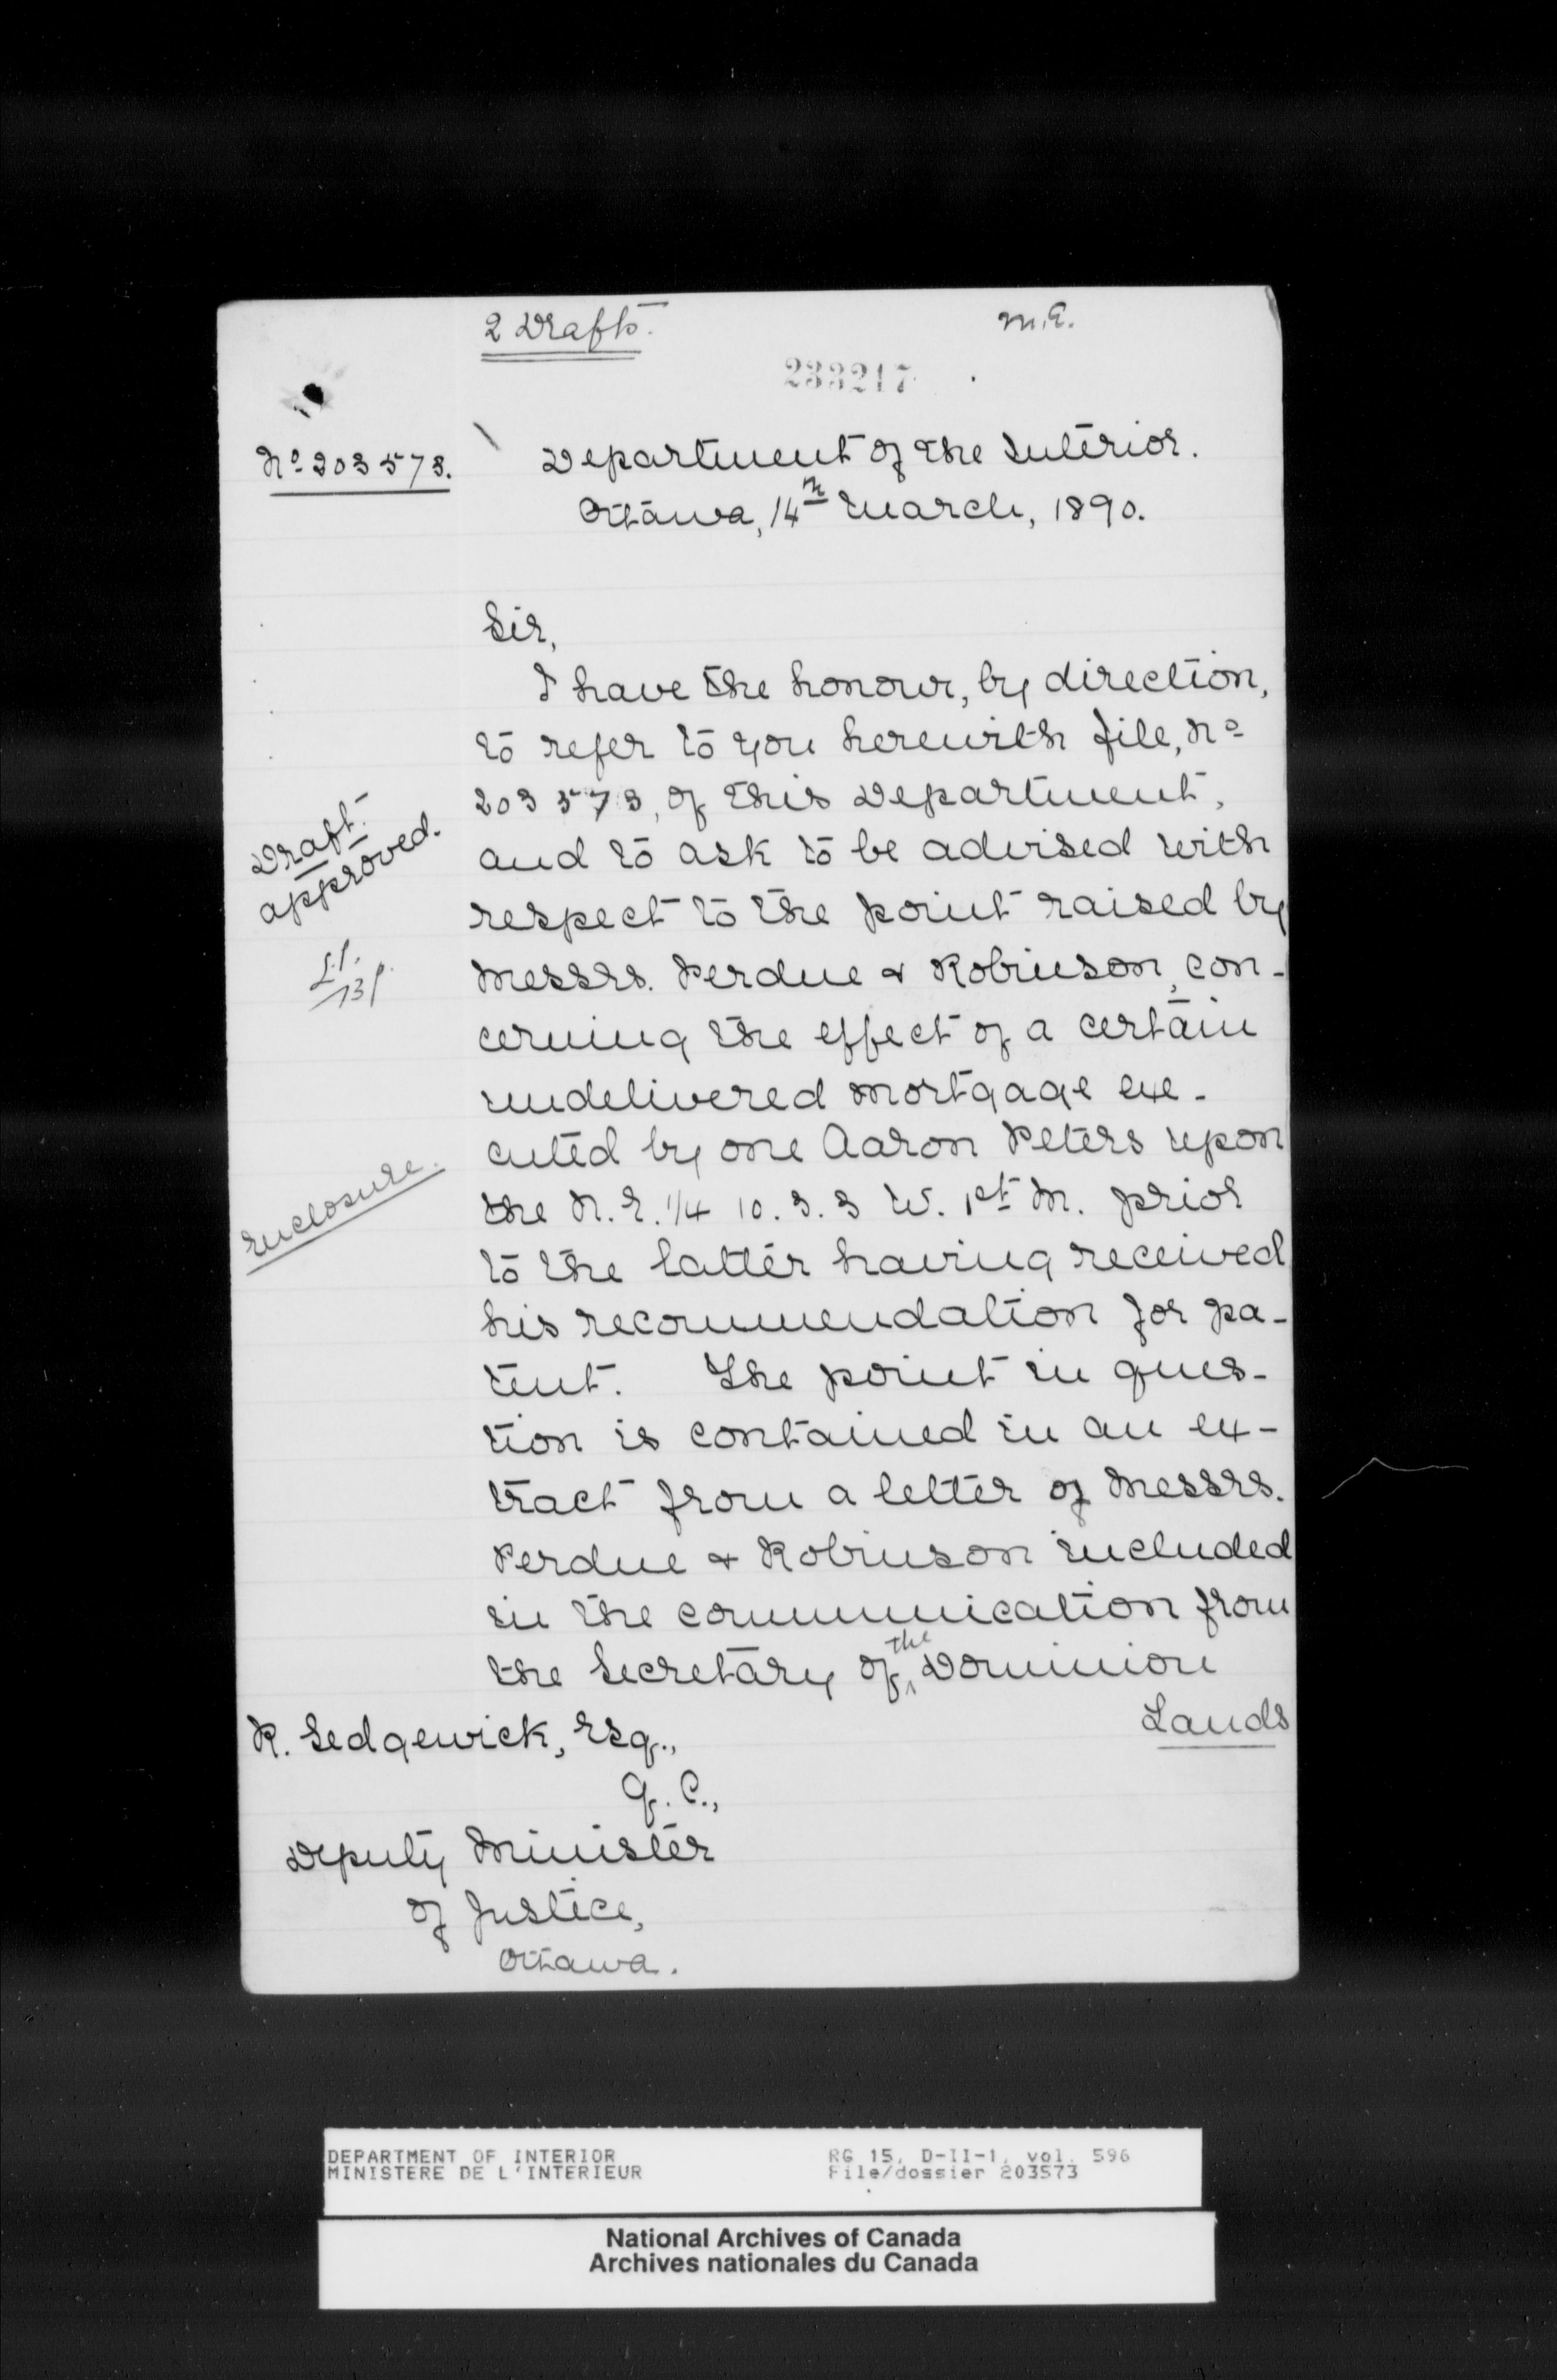 2 Drafts.
M.E.
233217
No 203573.
Department of the Interior.
Ottawa, 14th March, 1890.
Sir,
I have the honour, by direction,
to refer to you herewith file, No
203573, of this Department,
and to ask to be advised with
respect to the point raised by
Messrs. Perdue & Robinson, con-
cerning the effect of a certain
undelivered mortgage exe-
cuted by one Aaron Peters upon
the N.E. 1/4 10. 3. 3 W. 1st M. prior
to the latter having received
his recommendation for pa-
tent. The point in ques-
tion is contained in an ex-
tract from a letter of Messrs.
Perdue & Robinson included
in the communication from
the Secretary of the Dominion
Lands
Draft
approved.
Enclosure.
R. Sedgewick, Esq.,
Q.C.,
Deputy Minister
of Justice,
Ottawa.
DEPARTMENT OF INTERIOR
MINISTERE DE L'INTERIEUR
RG 15, D-II-1, vol. 596
File/dossier 203573
National Archives of Canada
Archives nationales du Canada